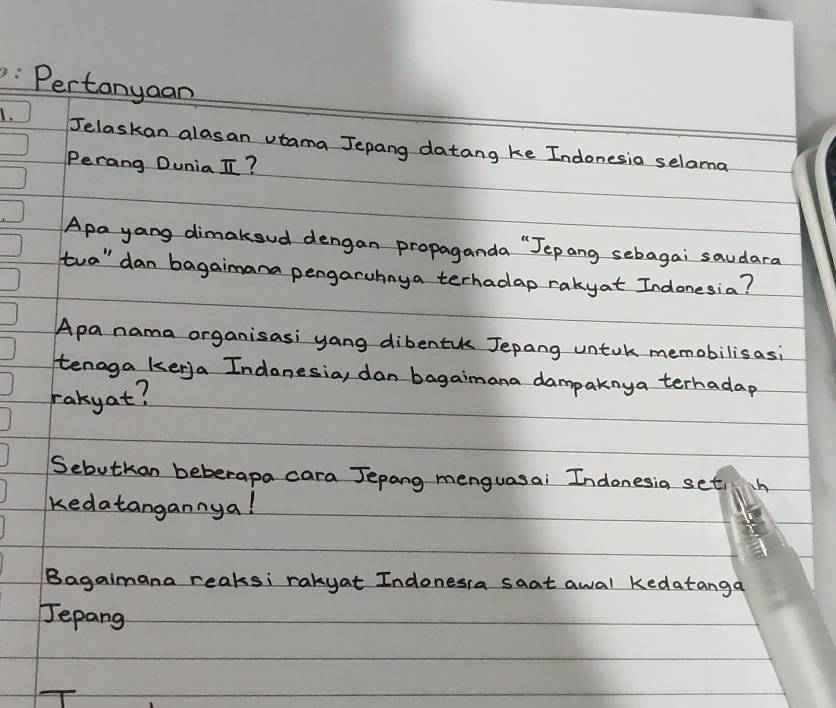 : Pertanyaan
1. Jelaskan alasan utama Jepang datang ke Indonesia selama
Perang Dunia II?
Apa yang dimaksud dengan propaganda "Jepang sebagai saudara
tua" dan bagaimana pengaruhnya terhadap rakyat Indonesia?
Apa nama organisasi yang dibentuk Jepang untuk memobilisasi
tenaga kerja Indonesia, dan bagaimana dampaknya terhadap
rakyat?
Sebutkan beberapa cara Jepang menguasai Indonesia
kedatangannya!
Bagaimana reaksi rakyat Indonesia saat awal kedatanga
Jepang